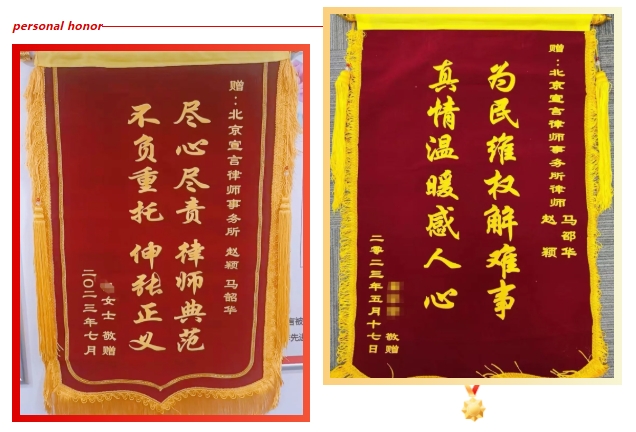 personal honor
赠：北京宣言律师事务所 赵颖 马韶华
尽心尽责 律师典范
不负重托 伸张正义
女士 敬赠
二〇二三年七月
赠：北京宣言律师事务所律师
马邵华
赵颖
为民维权解难事
真情温暖感人心
敬赠
二零二三年五月十七日